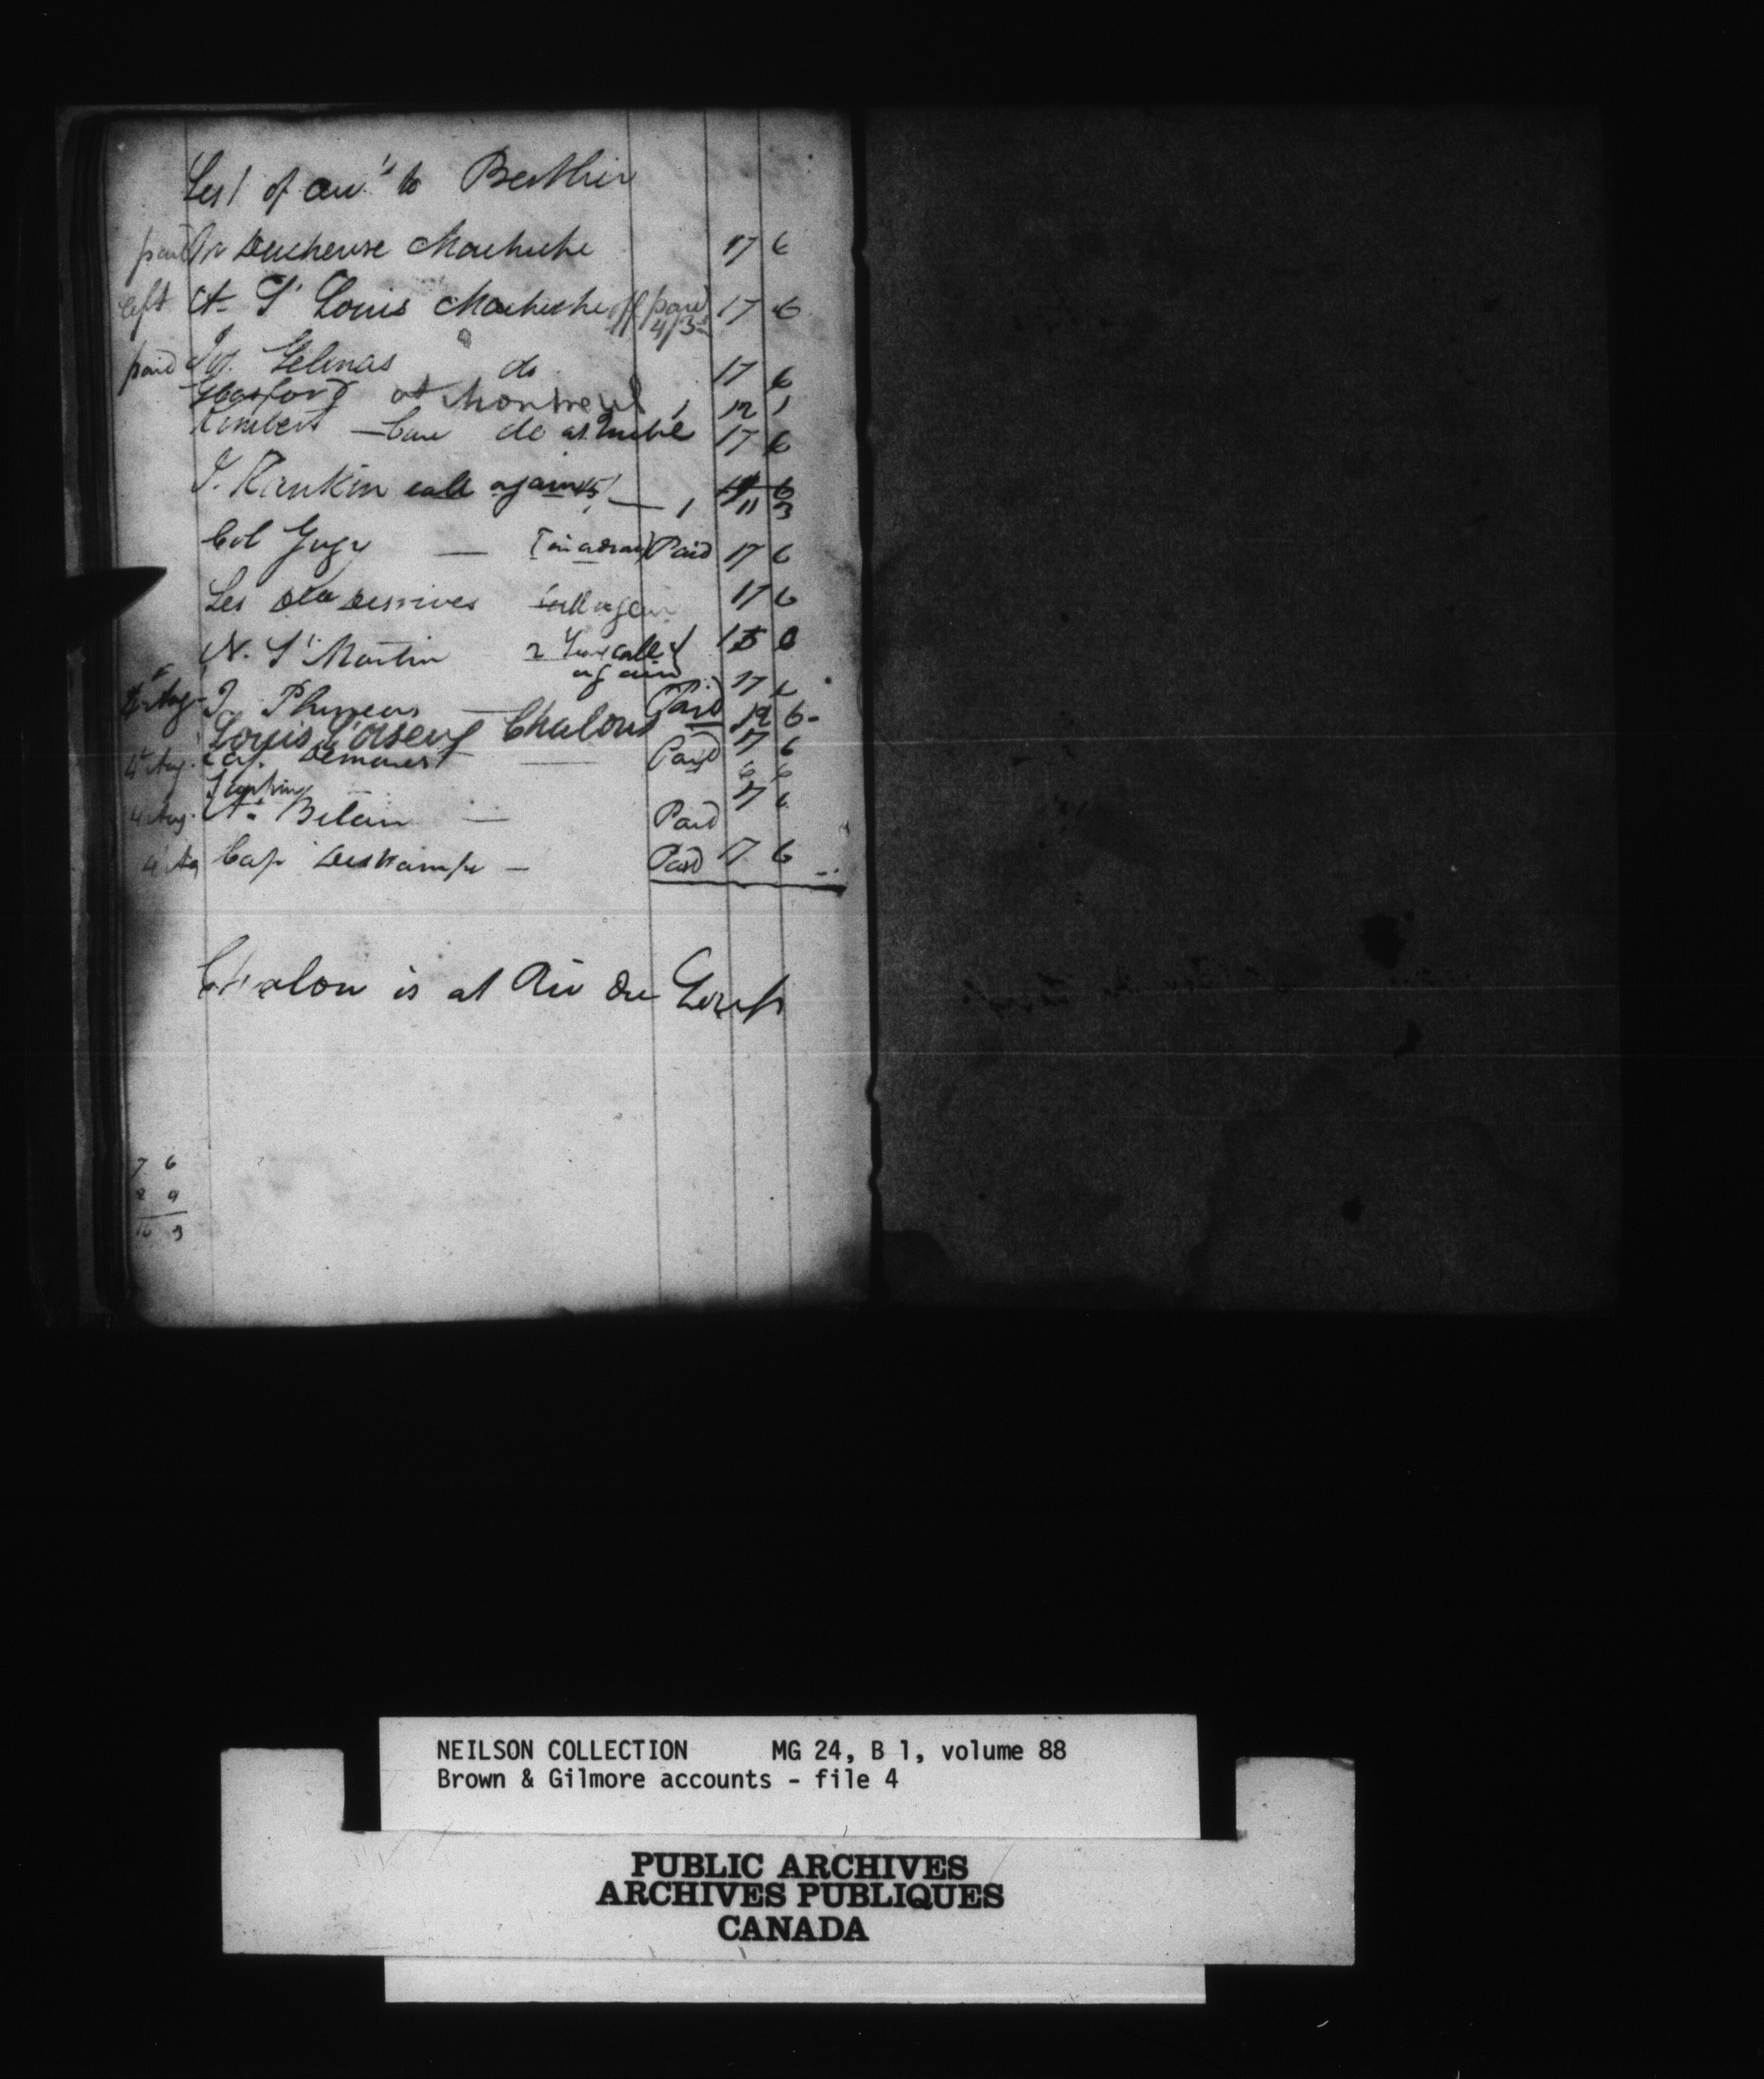 List of acc.ts to Berthier
paid Dr Duchesne Machiche 17 6
left A. St Louis Machiche off paid 17 6
4/3
paid Jos. Gelinas do 17 6
Glasford at Montreal 1 12 1
Rimbert — Cure do at 17 6
J. Rankin call again 15/ — 1 11 3
Col Gugy — Paid 17 6
Les Desrives call again 17 6
N. St Martin 2 call 15 0
again 17 6
4 Aug. J. Paid
Louis Chalou 12 6
4 Aug. Cap. Demarest — Paid 17 6
6 6
17 6
4 Aug. A. Belair — Paid
4 Ag Cap Deschamps — Paid 17 6
Chalou is at Riv Du Loup
7 6
8 9
16 3
NEILSON COLLECTION MG 24, B 1, volume 88
Brown & Gilmore accounts - file 4
PUBLIC ARCHIVES
ARCHIVES PUBLIQUES
CANADA